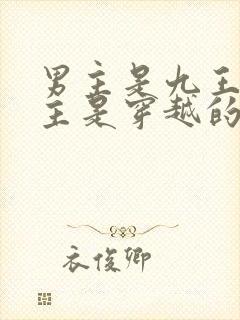 男主是九王
主是穿越的
衣俊卿